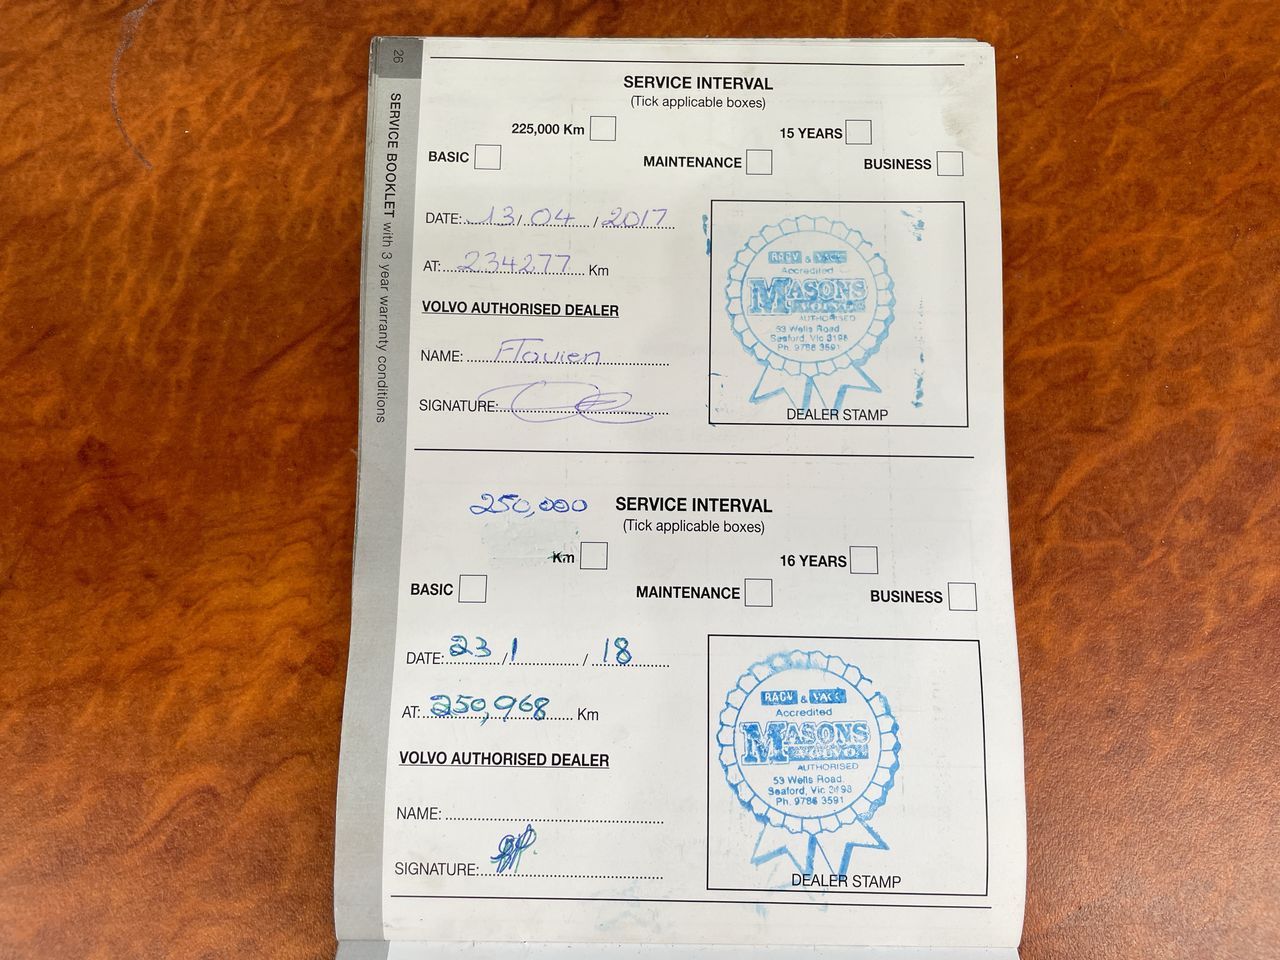 26
SERVICE BOOKLET with 3 year warranty conditions
SERVICE INTERVAL
(Tick applicable boxes)
225,000 Km
15 YEARS
BASIC
MAINTENANCE
BUSINESS
DATE: 13 / 04 / 2017
AT: 234277 Km
VOLVO AUTHORISED DEALER
NAME:
SIGNATURE:
RACV & VACC
Accredited
MASONS
VOLVO
AUTHORISED
53 Wells Road
Seaford, Vic 3198
Ph. 9786 3591
DEALER STAMP
250,000
SERVICE INTERVAL
(Tick applicable boxes)
Km
16 YEARS
BASIC
MAINTENANCE
BUSINESS
DATE: 23 / 1 / 18
AT: 250,968 Km
VOLVO AUTHORISED DEALER
NAME:
SIGNATURE:
RACV & VACC
Accredited
MASONS
VOLVO
AUTHORISED
53 Wells Road.
Seaford, Vic 3198
Ph. 9786 3591
DEALER STAMP